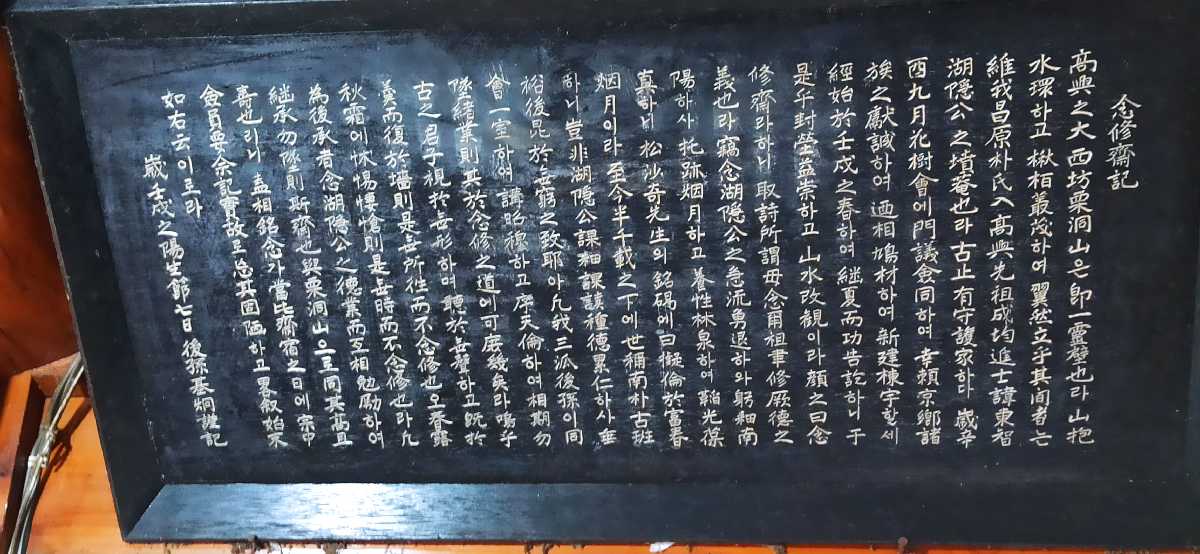 念修齋記
高興之大西坊栗洞山은卽一靈壁也라山抱
水環하고楸栢叢茂하여翼然立乎其間者는
維我昌原朴氏入高興先祖成均進士諱東智
湖隱公之堵菴也라古止有守護家하 歲辛
酉九月花樹會에門議僉同하여幸賴京鄕諸
族之獻誠하여迺相鳩材하여新建棟宇할세
經始於壬戌之春하여繼夏而功告訖하니于
是乎封塋益崇하고山水改觀이라顔之曰念
修齋라하니取詩所謂毋念爾祖聿修厥德之
義也라竊念湖隱公之急流勇退하와躬細南
陽하사托跡烟月하고養性林泉하여韜光葆
真하니松沙奇先生의銘碣에曰擬倫於富春
烟月이라至今半千載之下에世稱南朴古班
하니豈非湖隱公課細課讀種德累仁하사垂
裕後昆於無窮之致耶아凡我三派後孫이同
會一室하여講昭穆하고序天倫하여相期勿
墜緖業則其於念修之道에可庶幾矣라嗚乎
古之君子視於無形하며聽於無聲하고旣於
羹而復於墻則是無所往而不念修也오春露
秋霜에怵惕悽愴則是無時而不念修也라凡
為後承者念湖隱公之德業而互相勉勵하여
継承勿墜則斯齋也與栗洞山으로同其萬且
壽也리니盍相銘念가當此齋宿之日에宗中
僉員要余記實故로忘其固陋하고畧叙始末
如右云이로라
歲壬戌之陽生節七日後孫基炯謹記